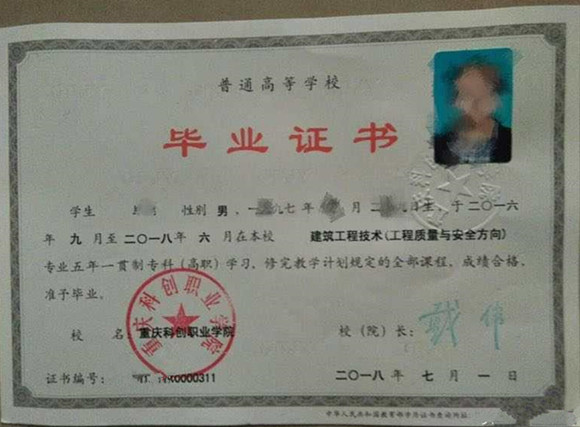 普通高等学校
毕业证书
学生 性别 男、一 七年 月二 生、于二〇一六
年 九 月至二〇一八年 六 月在本校 建筑工程技术(工程质量与安全方向)
专业五年一贯制专科(高职)学习，修完教学计划规定的全部课程，成绩合格，
准予毕业。
校 名：重庆科创职业学院 校（院）长：戴伟
重庆科创职业学院
证书编号： 0000311 二〇一八年 七 月 一 日
中华人民共和国教育部学历证书查询网址：